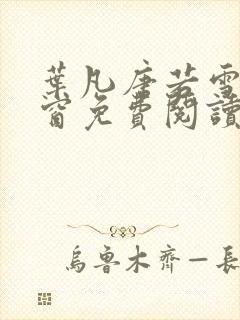 葉凡唐若雪
窗免費閱讀
烏魯木齊—長